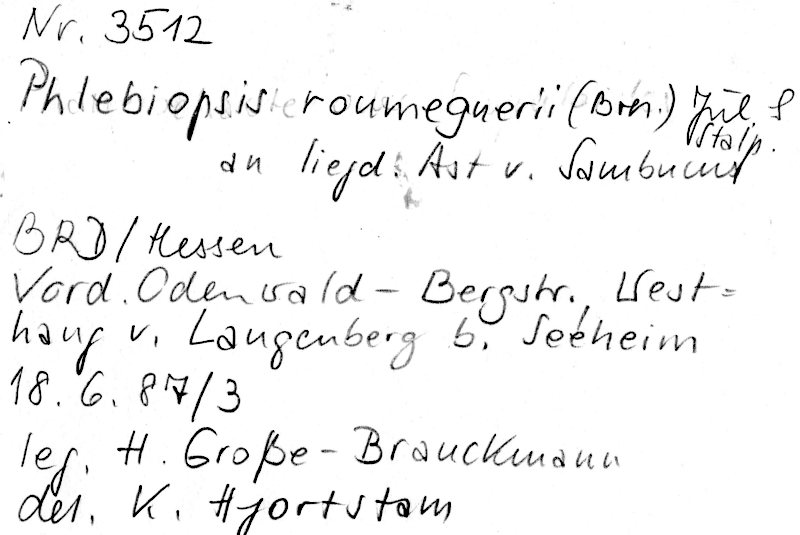 Nr. 3512
Phlebiopsis roumeguerii (Bres.) Jül. &
Stalp.
an liegd. Ast v. Sambucus
BRD/Hessen
Vord. Odenwald - Bergstr., West=
hang v. Langenberg b. Seeheim
18. 6. 87/3
leg. H. Große-Brauckmann
det. K. Hjortstam